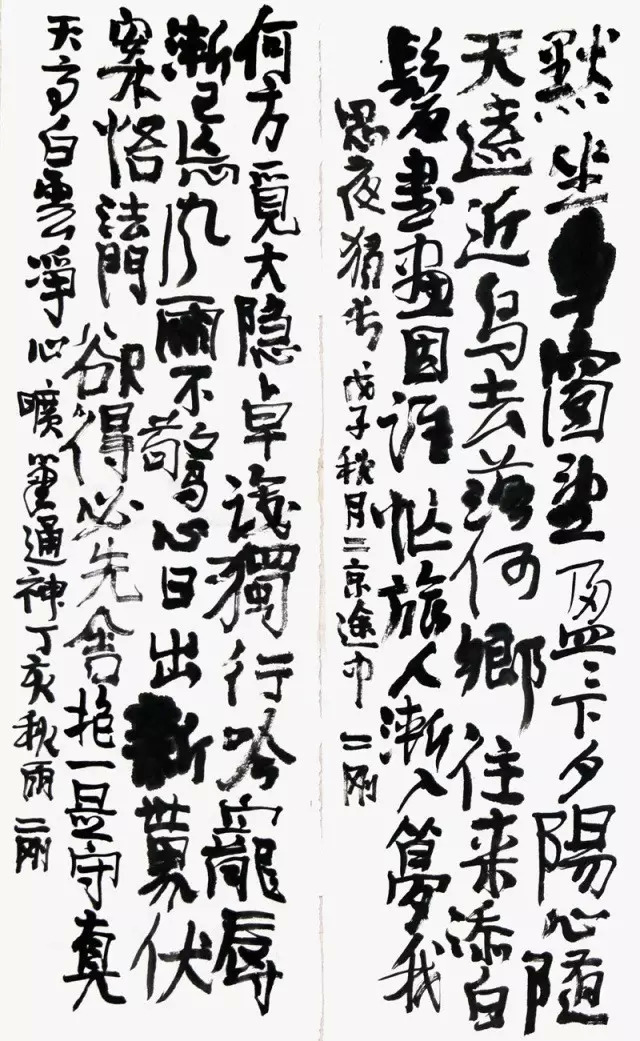 默坐車窗望盈ミ下夕陽心隨
天遠近鳥去落何鄉往来添白
髮書畫因誰忙旅人漸入夢我
思夜猶長 戊子秋月二京途中 二刚
何方覓大隐卓識獨行吟寵辱
漸已忘风雨不驚心日出新世界伏
案悟法門欲得必先舍抱一是守真
天高白雲净心曠筆通神丁亥秋雨二刚